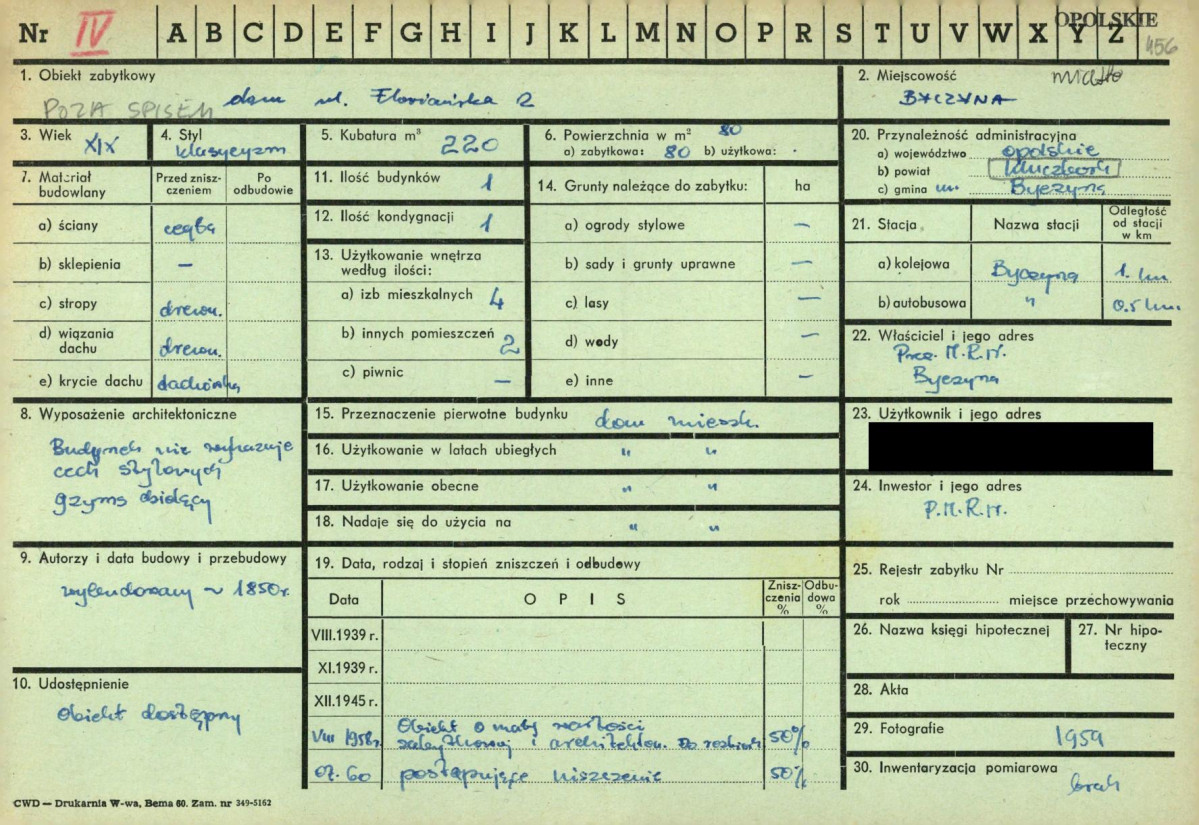 Nr IV A B C D E F G H I J K L M N O P R S T U V W X Y Z
OPOLSKIE
456
1. Obiekt zabytkowy
dom ul. Floriańska 2
POZA SPISEM
2. Miejscowość miasto
BYCZYNA
3. Wiek
XIX
4. Styl
klasycyzm
5. Kubatura m³
220
6. Powierzchnia w m² 80
a) zabytkowa: 80 b) użytkowa:
20. Przynależność administracyjna
a) województwo opolskie
b) powiat Kluczbork
c) gmina Byczyna
7. Materiał budowlany
Przed zniszczeniem
Po odbudowie
a) ściany cegła
b) sklepienia —
c) stropy drewn.
d) wiązania dachu drewn.
e) krycie dachu dachówka
11. Ilość budynków 1
12. Ilość kondygnacji 1
13. Użytkowanie wnętrza według ilości:
a) izb mieszkalnych 4
b) innych pomieszczeń 2
c) piwnic —
14. Grunty należące do zabytku: ha
a) ogrody stylowe —
b) sady i grunty uprawne —
c) lasy —
d) wody —
e) inne —
21. Stacja Nazwa stacji Odległość od stacji w km
a) kolejowa Byczyna 1. km
b) autobusowa " 0.5 km
22. Właściciel i jego adres
Prez. M.R.N.
Byczyna
8. Wyposażenie architektoniczne
Budynek nie wykazuje
cech stylowych
gzyms bieżący
15. Przeznaczenie pierwotne budynku dom mieszk.
16. Użytkowanie w latach ubiegłych " "
17. Użytkowanie obecne " "
18. Nadaje się do użycia na " "
23. Użytkownik i jego adres
24. Inwestor i jego adres
P.M.R.N.
9. Autorzy i data budowy i przebudowy
wybudowany ~ 1850 r.
10. Udostępnienie
Obiekt dostępny
19. Data, rodzaj i stopień zniszczeń i odbudowy
Data OPIS Zniszczenia % Odbudowa %
VIII.1939 r.
XI.1939 r.
XII.1945 r.
VIII 1958r. Obiekt o małej wartości
zabytkowej i architekton. Do rozbiórki 50%
postępujące niszczenie 50%
25. Rejestr zabytku Nr
rok miejsce przechowywania
26. Nazwa księgi hipotecznej
27. Nr hipoteczny
28. Akta
29. Fotografie 1959
30. Inwentaryzacja pomiarowa
brak
CWD — Drukarnia W-wa, Bema 60. Zam. nr 349-5162